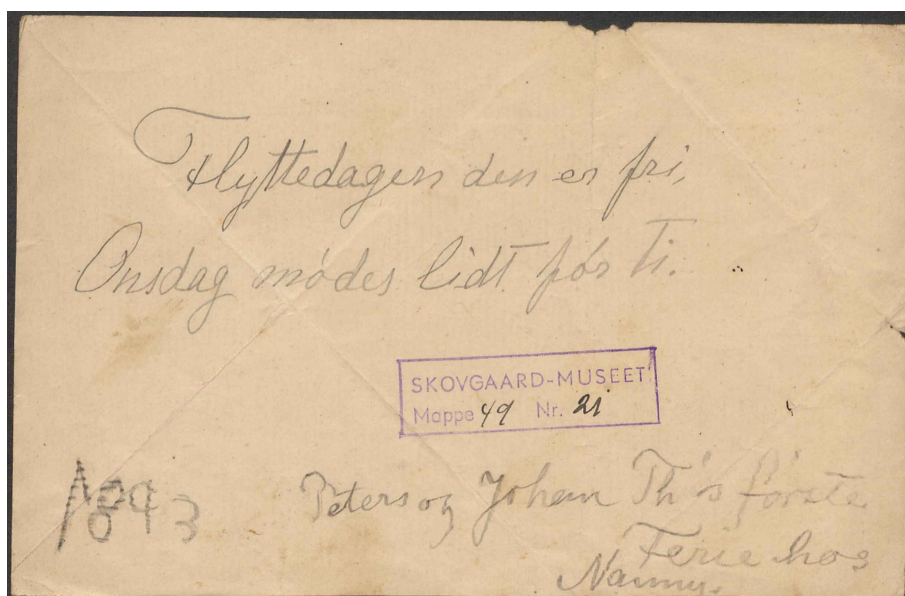 Flyttedagen den er fri,
Onsdag mødes lidt før ti.
SKOVGAARD-MUSEET
Mappe 49 Nr. 21
1893
Peters og Johan Th's første
Ferie hos
Nanny.